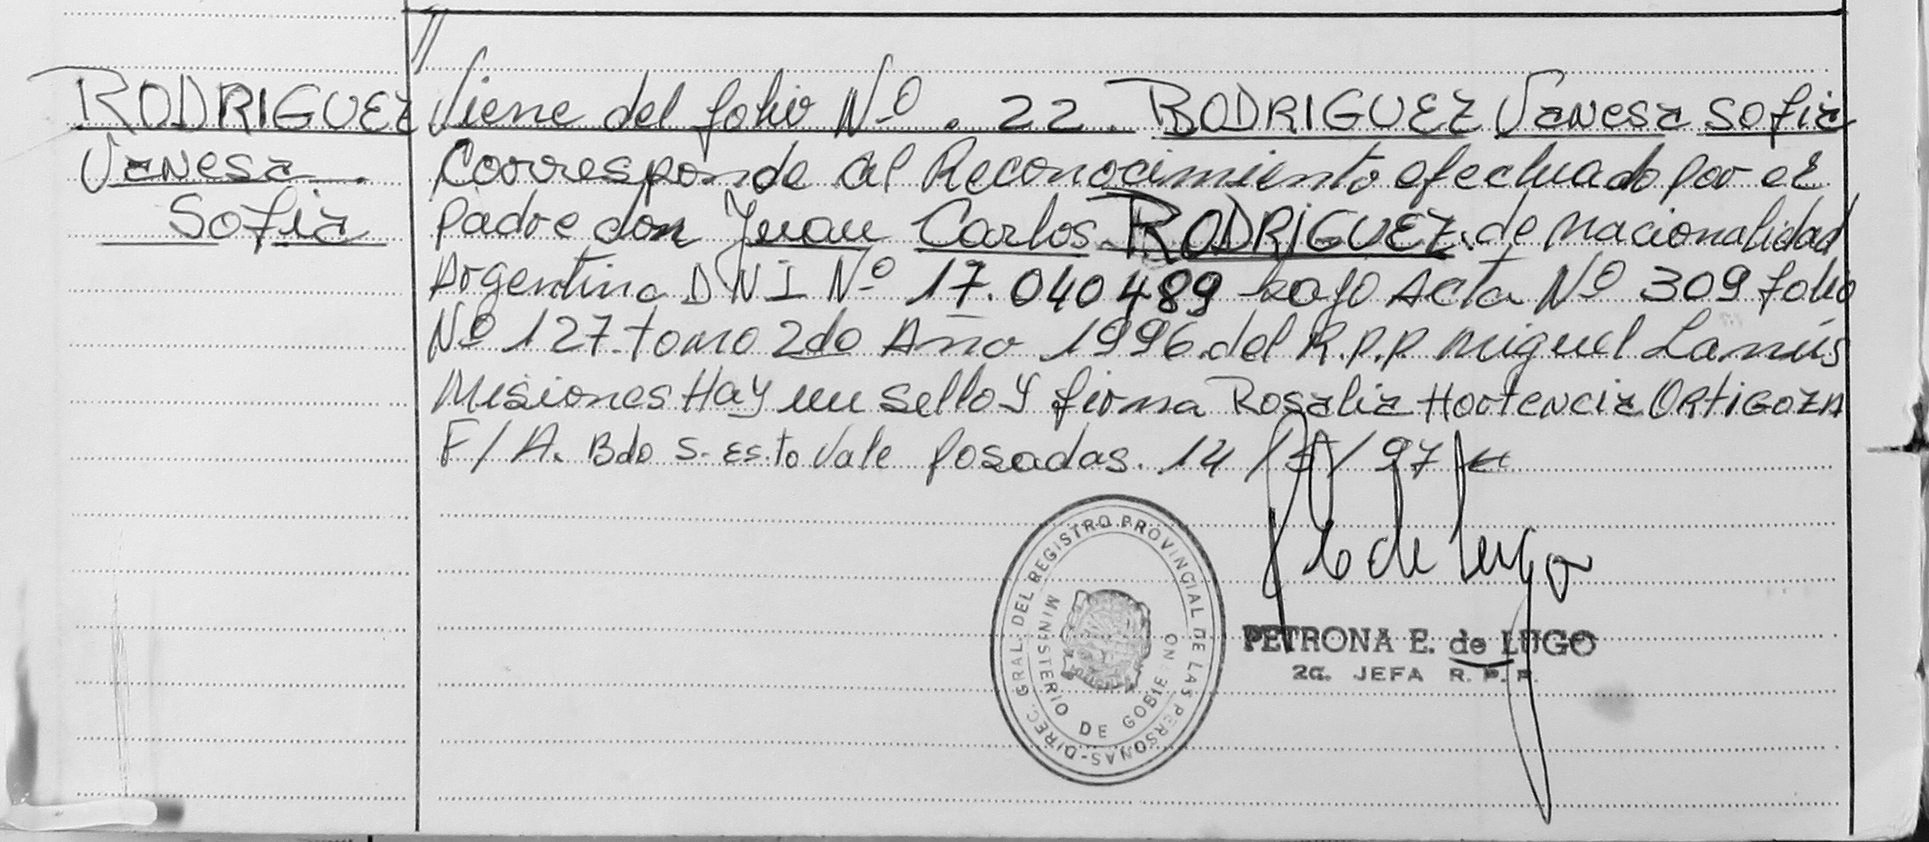 RODRIGUEZ
Vanesa
Sofia
// Viene del folio Nº. 22. RODRIGUEZ Vanesa Sofia
Corresponde al Reconocimiento efectuado por el
padre don Juan Carlos RODRIGUEZ. de nacionalidad
Argentina DNI Nº 17.040489 bajo Acta Nº 309 folio
Nº 127. tomo 2do Año 1996. del R.P.P Miguel Lanús
Misiones Hay un sello y firma Rosalia Hortencia ORTIGOZA
F/A. Bdo S. Es.to Vale Posadas. 14 / / 97
DIREC. GRAL. DEL REGISTRO PROVINCIAL DE LAS PERSONAS
MINISTERIO DE GOBIERNO
P de Lugo
PETRONA E. de LUGO
2a. JEFA R. P. P.